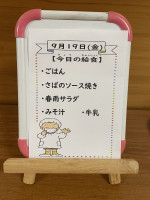 9月19日(金)
【今日の給食】
・ごはん
・さばのソース焼き
・春雨サラダ
・みそ汁 ・牛乳